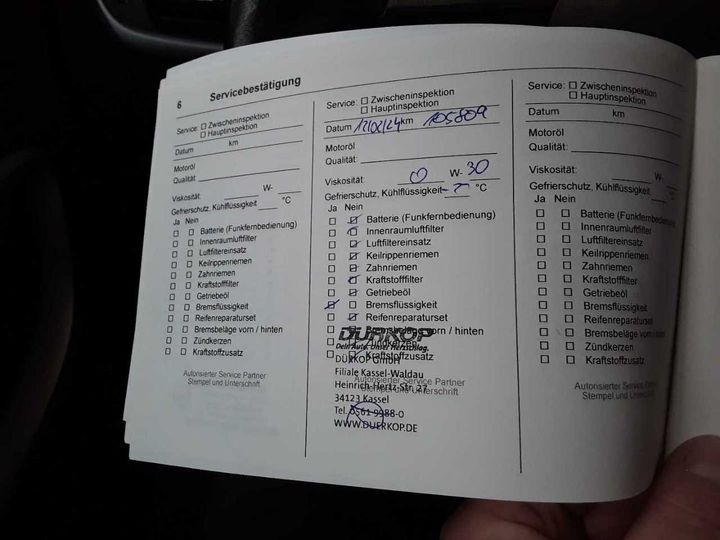 6 Servicebestätigung
Service: ☐ Zwischeninspektion
☐ Hauptinspektion
Datum km
Motoröl
Qualität:
Viskosität: W-
Gefrierschutz, Kühlflüssigkeit °C
Ja Nein
☐ ☐ Batterie (Funkfernbedienung)
☐ ☐ Innenraumluftfilter
☐ ☐ Luftfiltereinsatz
☐ ☐ Keilrippenriemen
☐ ☐ Zahnriemen
☐ ☐ Kraftstofffilter
☐ ☐ Getriebeöl
☐ ☐ Bremsflüssigkeit
☐ ☐ Reifenreparaturset
☐ ☐ Bremsbeläge vorn / hinten
☐ ☐ Zündkerzen
☐ ☐ Kraftstoffzusatz
Autorisierter Service Partner
Stempel und Unterschrift
Service: ☐ Zwischeninspektion
☐ Hauptinspektion
Datum 12/02/24 km 105809
Motoröl
Qualität:
Viskosität: 0 W- 30
Gefrierschutz, Kühlflüssigkeit °C
Ja Nein
☐ ☑ Batterie (Funkfernbedienung)
☐ ☑ Innenraumluftfilter
☐ ☑ Luftfiltereinsatz
☐ ☑ Keilrippenriemen
☐ ☑ Zahnriemen
☐ ☑ Kraftstofffilter
☐ ☑ Getriebeöl
☑ ☐ Bremsflüssigkeit
☐ ☑ Reifenreparaturset
☐ ☑ Bremsbeläge vorn / hinten
☐ ☑ Zündkerzen
☐ ☑ Kraftstoffzusatz
DÜRKOP
Dein Auto. Unser Herzschlag.
DÜRKOP GmbH
Filiale Kassel-Waldau
Autorisierter Service Partner
Heinrich-Hertz-Str. 27
Stempel und Unterschrift
34123 Kassel
Tel. 0561 9988-0
WWW.DUERKOP.DE
Service: ☐ Zwischeninspektion
☐ Hauptinspektion
Datum km
Motoröl
Qualität:
Viskosität: W-
Gefrierschutz, Kühlflüssigkeit °C
Ja Nein
☐ ☐ Batterie (Funkfernbedienung)
☐ ☐ Innenraumluftfilter
☐ ☐ Luftfiltereinsatz
☐ ☐ Keilrippenriemen
☐ ☐ Zahnriemen
☐ ☐ Kraftstofffilter
☐ ☐ Getriebeöl
☐ ☐ Bremsflüssigkeit
☐ ☐ Reifenreparaturset
☐ ☐ Bremsbeläge vorn / hinten
☐ ☐ Zündkerzen
☐ ☐ Kraftstoffzusatz
Autorisierter Service Partner
Stempel und Unterschrift